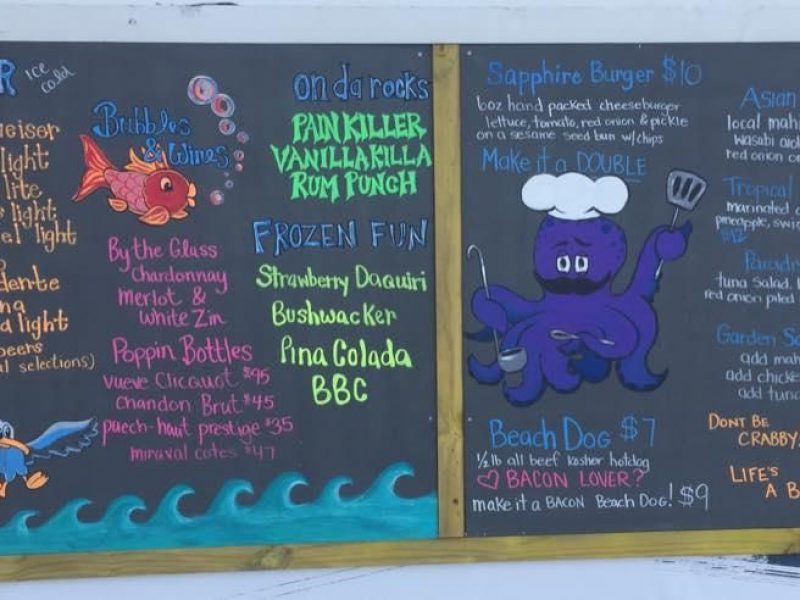 R ice cold
eiser
light
lite
light
el light
dente
na
d light
beers
al selections)
Bubbles
& Wines
By the Glass
Chardonnay
Merlot &
White Zin
Poppin Bottles
Vueve Clicquot $95
Chandon Brut $45
puech-haut prestige $35
miraval cotes $47
on da rocks
PAINKILLER
VANILLAKILLA
RUM PUNCH
FROZEN FUN
Strawberry Daquiri
Bushwacker
Pina Colada
BBC
Sapphire Burger $10
6oz hand packed cheeseburger
lettuce, tomato, red onion & pickle
on a sesame seed bun w/chips
Make it a DOUBLE
Beach Dog $7
1/2 lb all beef kosher hotdog
♡ BACON LOVER?
make it a BACON Beach Dog! $9
Asian
local mahi
wasabi
red onion
Tropical
marinated
pineapple,
tuna salad.
red onion piled
Garden
add mah
add chick
add tun
DONT BE
CRABBY,
LIFE'S
A B